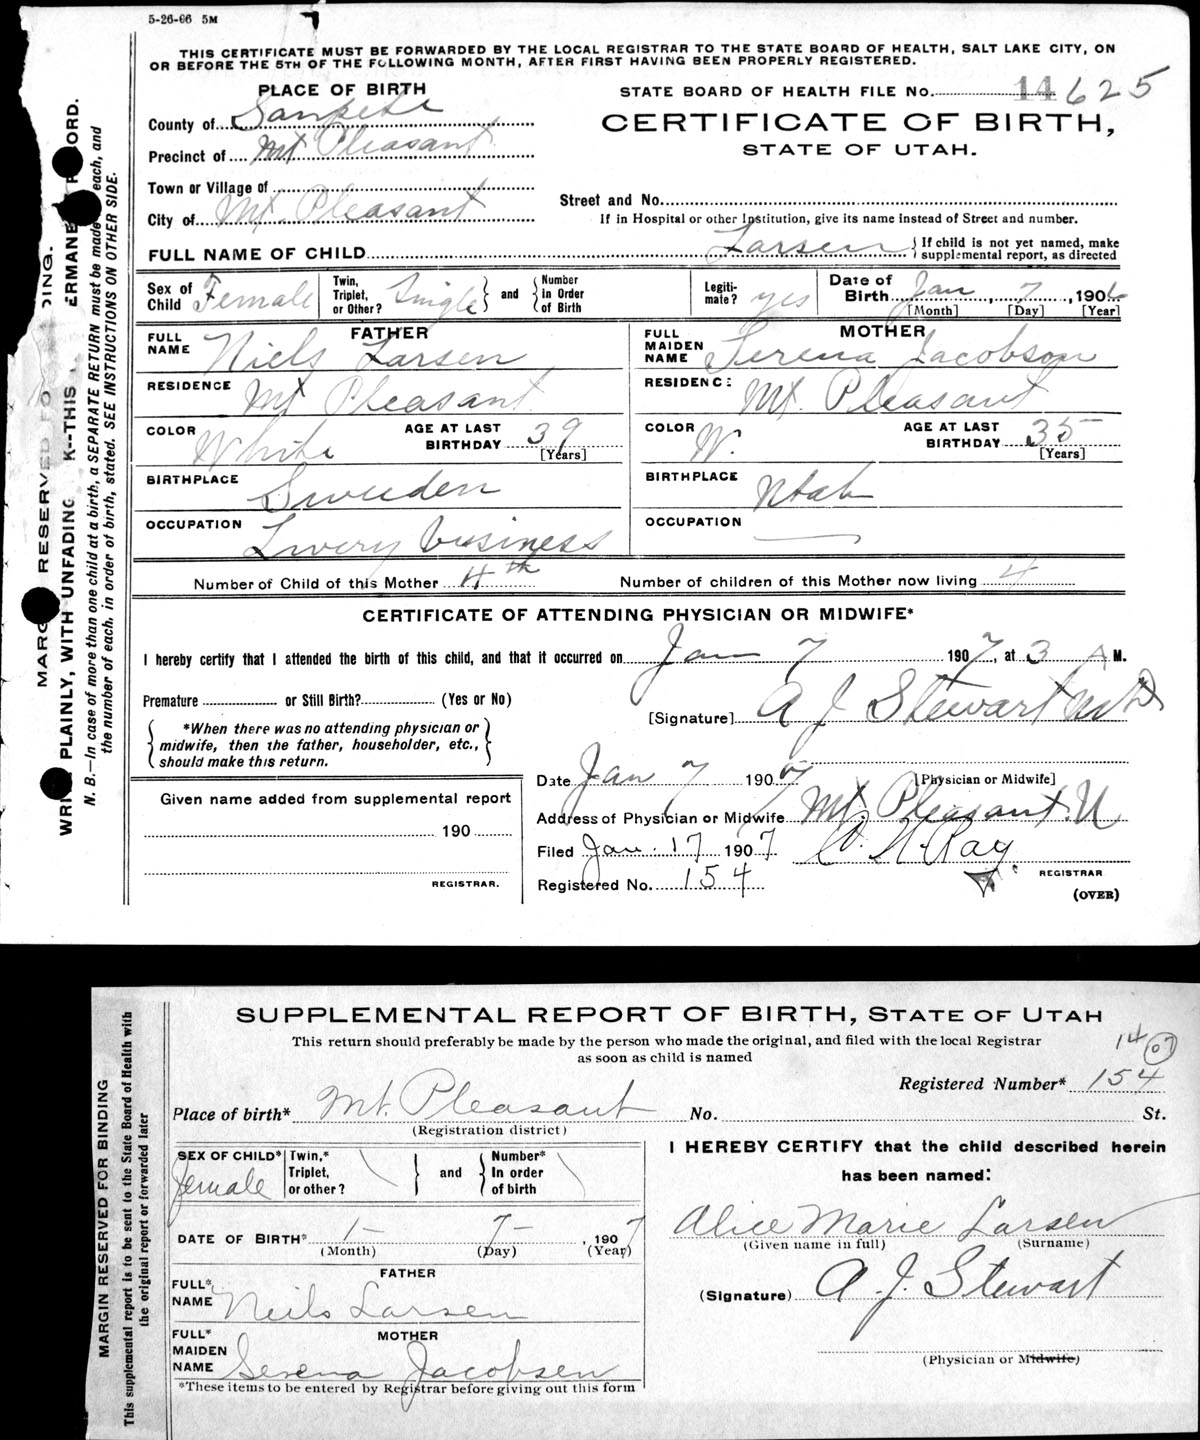 5-26-06 5M
THIS CERTIFICATE MUST BE FORWARDED BY THE LOCAL REGISTRAR TO THE STATE BOARD OF HEALTH, SALT LAKE CITY, ON
OR BEFORE THE 5TH OF THE FOLLOWING MONTH, AFTER FIRST HAVING BEEN PROPERLY REGISTERED.
PLACE OF BIRTH
STATE BOARD OF HEALTH FILE No. 14625
County of Sanpete
CERTIFICATE OF BIRTH,
Precinct of Mt Pleasant
STATE OF UTAH.
Town or Village of
Street and No.
City of Mt. Pleasant
If in Hospital or other Institution, give its name instead of Street and number.
FULL NAME OF CHILD Larsen } If child is not yet named, make
supplemental report, as directed
Sex of Child Female
Twin, Triplet, or Other? Single } and { Number in Order of Birth
Legiti-mate? yes
Date of Birth Jan, 7, 190
[Month] [Day] [Year]
FATHER
FULL NAME Niels Larsen
MOTHER
FULL MAIDEN NAME Serena Jacobson
RESIDENCE Mt Pleasant
RESIDENCE Mt. Pleasant
COLOR White AGE AT LAST BIRTHDAY 39 [Years]
COLOR W. AGE AT LAST BIRTHDAY 35 [Years]
BIRTHPLACE Sweeden
BIRTHPLACE Utah
OCCUPATION Livery business
OCCUPATION —
Number of Child of this Mother 4th Number of children of this Mother now living 4
CERTIFICATE OF ATTENDING PHYSICIAN OR MIDWIFE*
I hereby certify that I attended the birth of this child, and that it occurred on Jan 7 1907, at 3 A M.
Premature or Still Birth? (Yes or No)
[Signature] A J Stewart MD
*When there was no attending physician or
midwife, then the father, householder, etc.,
should make this return.
Date Jan 7 1907 [Physician or Midwife]
Given name added from supplemental report
Address of Physician or Midwife Mt. Pleasant. U
190
Filed Jan. 17 1907 Ray
REGISTRAR
REGISTRAR.
Registered No. 154
(OVER)
MARG RESERVED FO DING.
WRI PLAINLY, WITH UNFADING K--THIS ERMANE ORD.
N. B.—In case of more than one child at a birth, a SEPARATE RETURN must be made each, and
the number of each, in order of birth, stated. SEE INSTRUCTIONS ON OTHER SIDE.
SUPPLEMENTAL REPORT OF BIRTH, STATE OF UTAH
This return should preferably be made by the person who made the original, and filed with the local Registrar
as soon as child is named
14 07
Registered Number* 154
Place of birth* Mt. Pleasant No. St.
(Registration district)
SEX OF CHILD* female
Twin,* Triplet, or other? } and { Number* In order of birth
I HEREBY CERTIFY that the child described herein
has been named:
DATE OF BIRTH* 1- 7-, 1907
(Month) (Day) (Year)
Alice Marie Larsen
(Given name in full) (Surname)
FATHER
FULL* NAME Neils Larsen
(Signature) A. J. Stewart
MOTHER
FULL* MAIDEN NAME Serena Jacobsen
(Physician or Midwife)
*These items to be entered by Registrar before giving out this form
MARGIN RESERVED FOR BINDING
This supplemental report is to be sent to the State Board of Health with
the original report or forwarded later